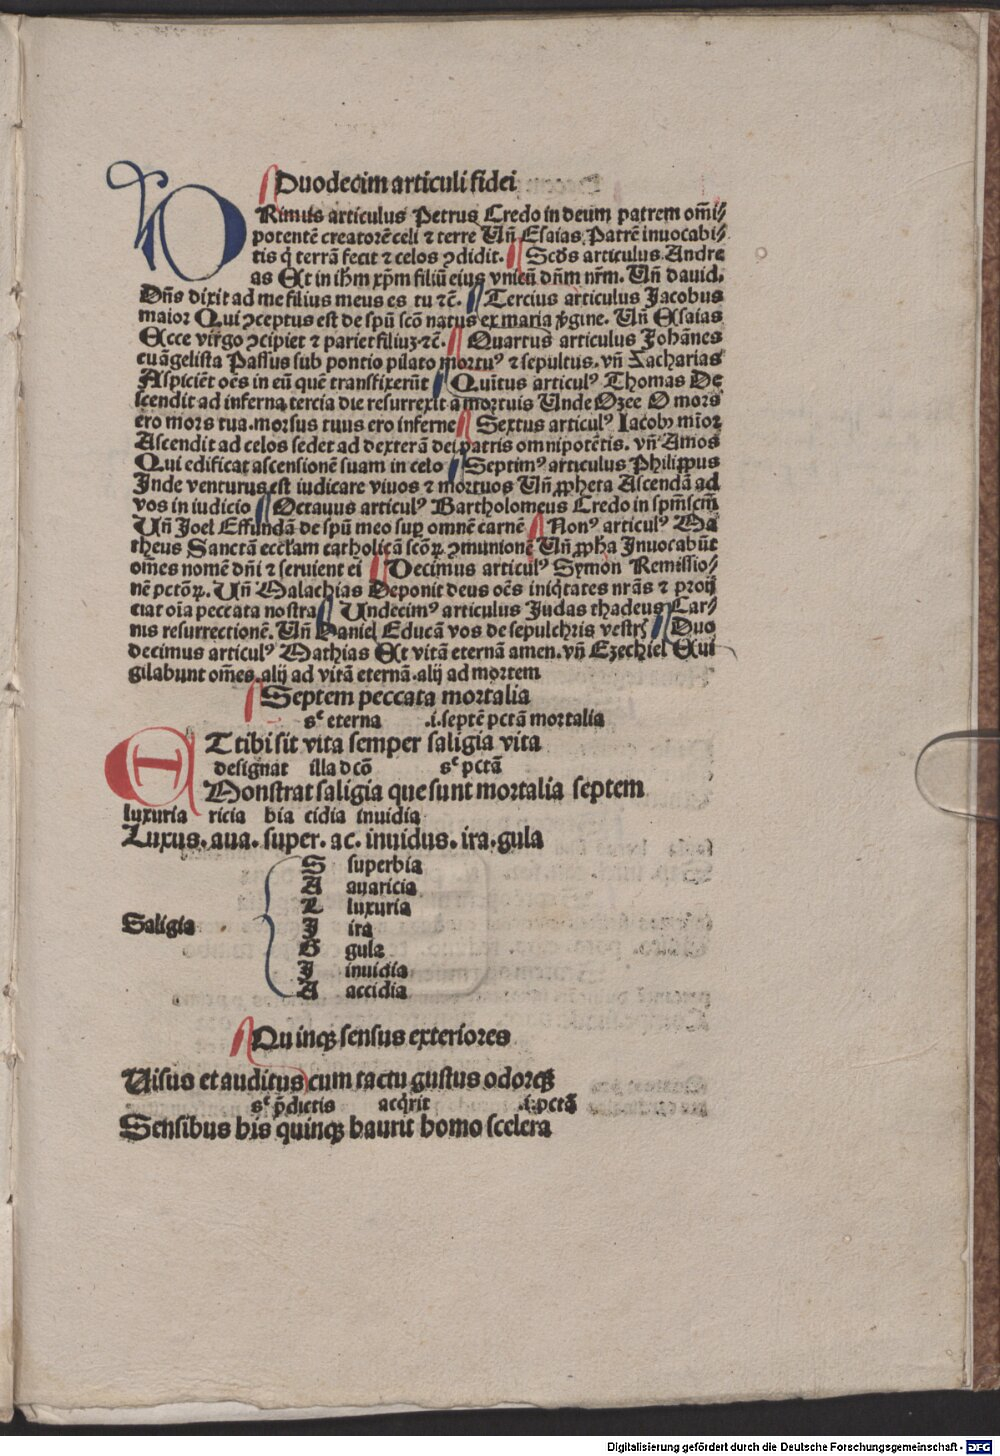 Duodecim articuli fidei
PRimus articulus Petrus Credo in deum patrem om̄i⸗
potentē creatorē celi ⁊ terre Vn̄ Esaias Patrē inuocabi⸗
tis q̇ terrā fecit ⁊ celos ꝯdidit. Scd̄s articulus Andre
as Et in ih̄m xp̄m filiū eius vnicū dn̄m nr̄m. Vn̄ dauid.
Dn̄s dixit ad me filius meus es tu ⁊c̄. Tercius articulus Jacobus
maior Qui ꝯceptus est de spū scō natus ex maria ꝟgine. Vn̄ Esaias
Ecce virgo ꝯcipiet ⁊ pariet filiuꝫ ⁊c̄. Quartus articulus Johānes
euāgelista Passus sub pontio pilato mortuꝰ ⁊ sepultus. vn̄ Zacharias
Aspiciēt oēs in eū quē transfixerūt Quītus articulꝰ Thomas De
scendit ad inferna tercia die resurrexit a mortuis Unde Ozee O mors
ero mors tua. morsus tuus ero inferne Sextus articulꝰ Iacobꝰ mīor
Ascendit ad celos sedet ad dexterā dei patris omnipotētis. vn̄ Amos
Qui edificat ascensionē suam in celo Septimꝰ articulus Philippus
Inde venturus est iudicare viuos ⁊ mortuos Vn̄ ꝓpheta Ascendā ad
vos in iudicio Octauus articulꝰ Bartholomeus Credo in sp̄m scm̄
Vn̄ Joel Effundā de spū meo suꝑ omnē carnē Nonꝰ articulꝰ Ma
theus Sanctā eccl̄am catholicā scōꝝ ꝯmunionē Vn̄ ꝓph̄a Inuocabūt
om̄es nomē dn̄i ⁊ seruient ei Decimus articulꝰ Symon Remissio⸗
nē pctōꝝ. Vn̄ Malachias Deponit deus oēs iniq̇tates nrās ⁊ proij
ciat oīa peccata nostra Undecimꝰ articulus Judas thadeus Car⸗
nis resurrectionē. Vn̄ Daniel Educā vos de sepulchris vestrꝭ Duo
decimus articulꝰ Mathias Et vitā eternā amen. vn̄ Ezechiel Eui
gilabunt om̄es. alij ad vitā eternā. alij ad mortem
Septem peccata mortalia
sᶜ eterna .i. septē pctā mortalia
ET tibi sit vita semper saligia vita
designat illa dcō sᶜ pctā
Monstrat saligia que sunt mortalia septem
luxuria ricia bia cidia inuidia
Luxus. aua. super. ac. inuidus. ira. gula
S superbia
A auaricia
L luxuria
Saligia I ira
G gula
I inuidia
A accidia
Quinqꝫ sensus exteriores
Visus et auditus cum tactu gustus odorqꝫ
sᶜ p̄dictis acq̇rit .i. pctā
Sensibus his quinqꝫ haurit homo scelera
Digitalisierung gefördert durch die Deutsche Forschungsgemeinschaft - DFG